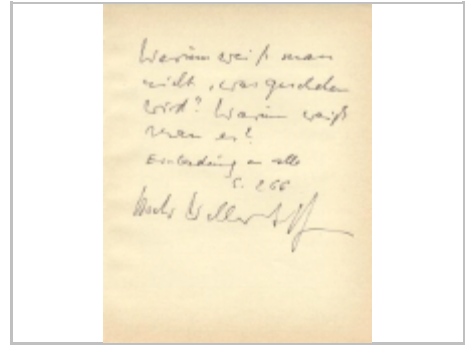 Warum weiß man
nicht, was geschehen
wird? Warum weiß
man es?
Einladung an alle
S. 266
Wellershoff